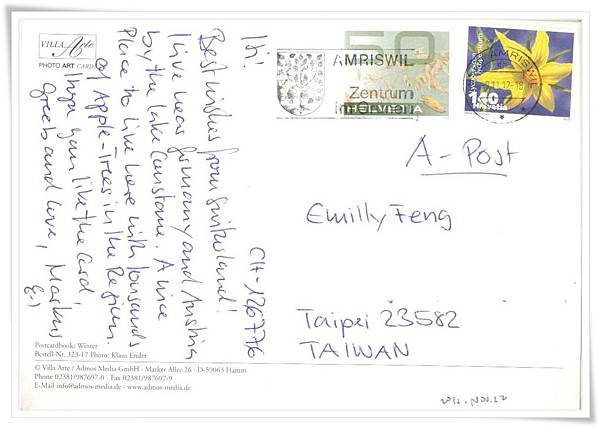 VILLA Arte
PHOTO ART CARD
Hi!
Best wishes from Switzerland!
I live near Germany and Austria
by the lake Constance. A nice
Place to live here with tousands
of Apple-Trees in the Region.
I hope you like the Card!
Greeb and love, Markus
:-)
CH-126776
50
HELVETIA
AMRISWIL
Zentrum
AMRISWIL
11.12-18
140
Helvetia
A-Post
Emilly Feng
Taipei 23582
TAIWAN
Postcardbook: Winter
Bestell-Nr. 323-17 Photo: Klaus Ender
© Villa Arte / Admos Media GmbH - Marker Allee 26 - D-59063 Hamm
Phone 02381/987697-0 - Fax 02381/987697-9
E-Mail info@admos-media.de - www.admos-media.de
2012.NOV.22